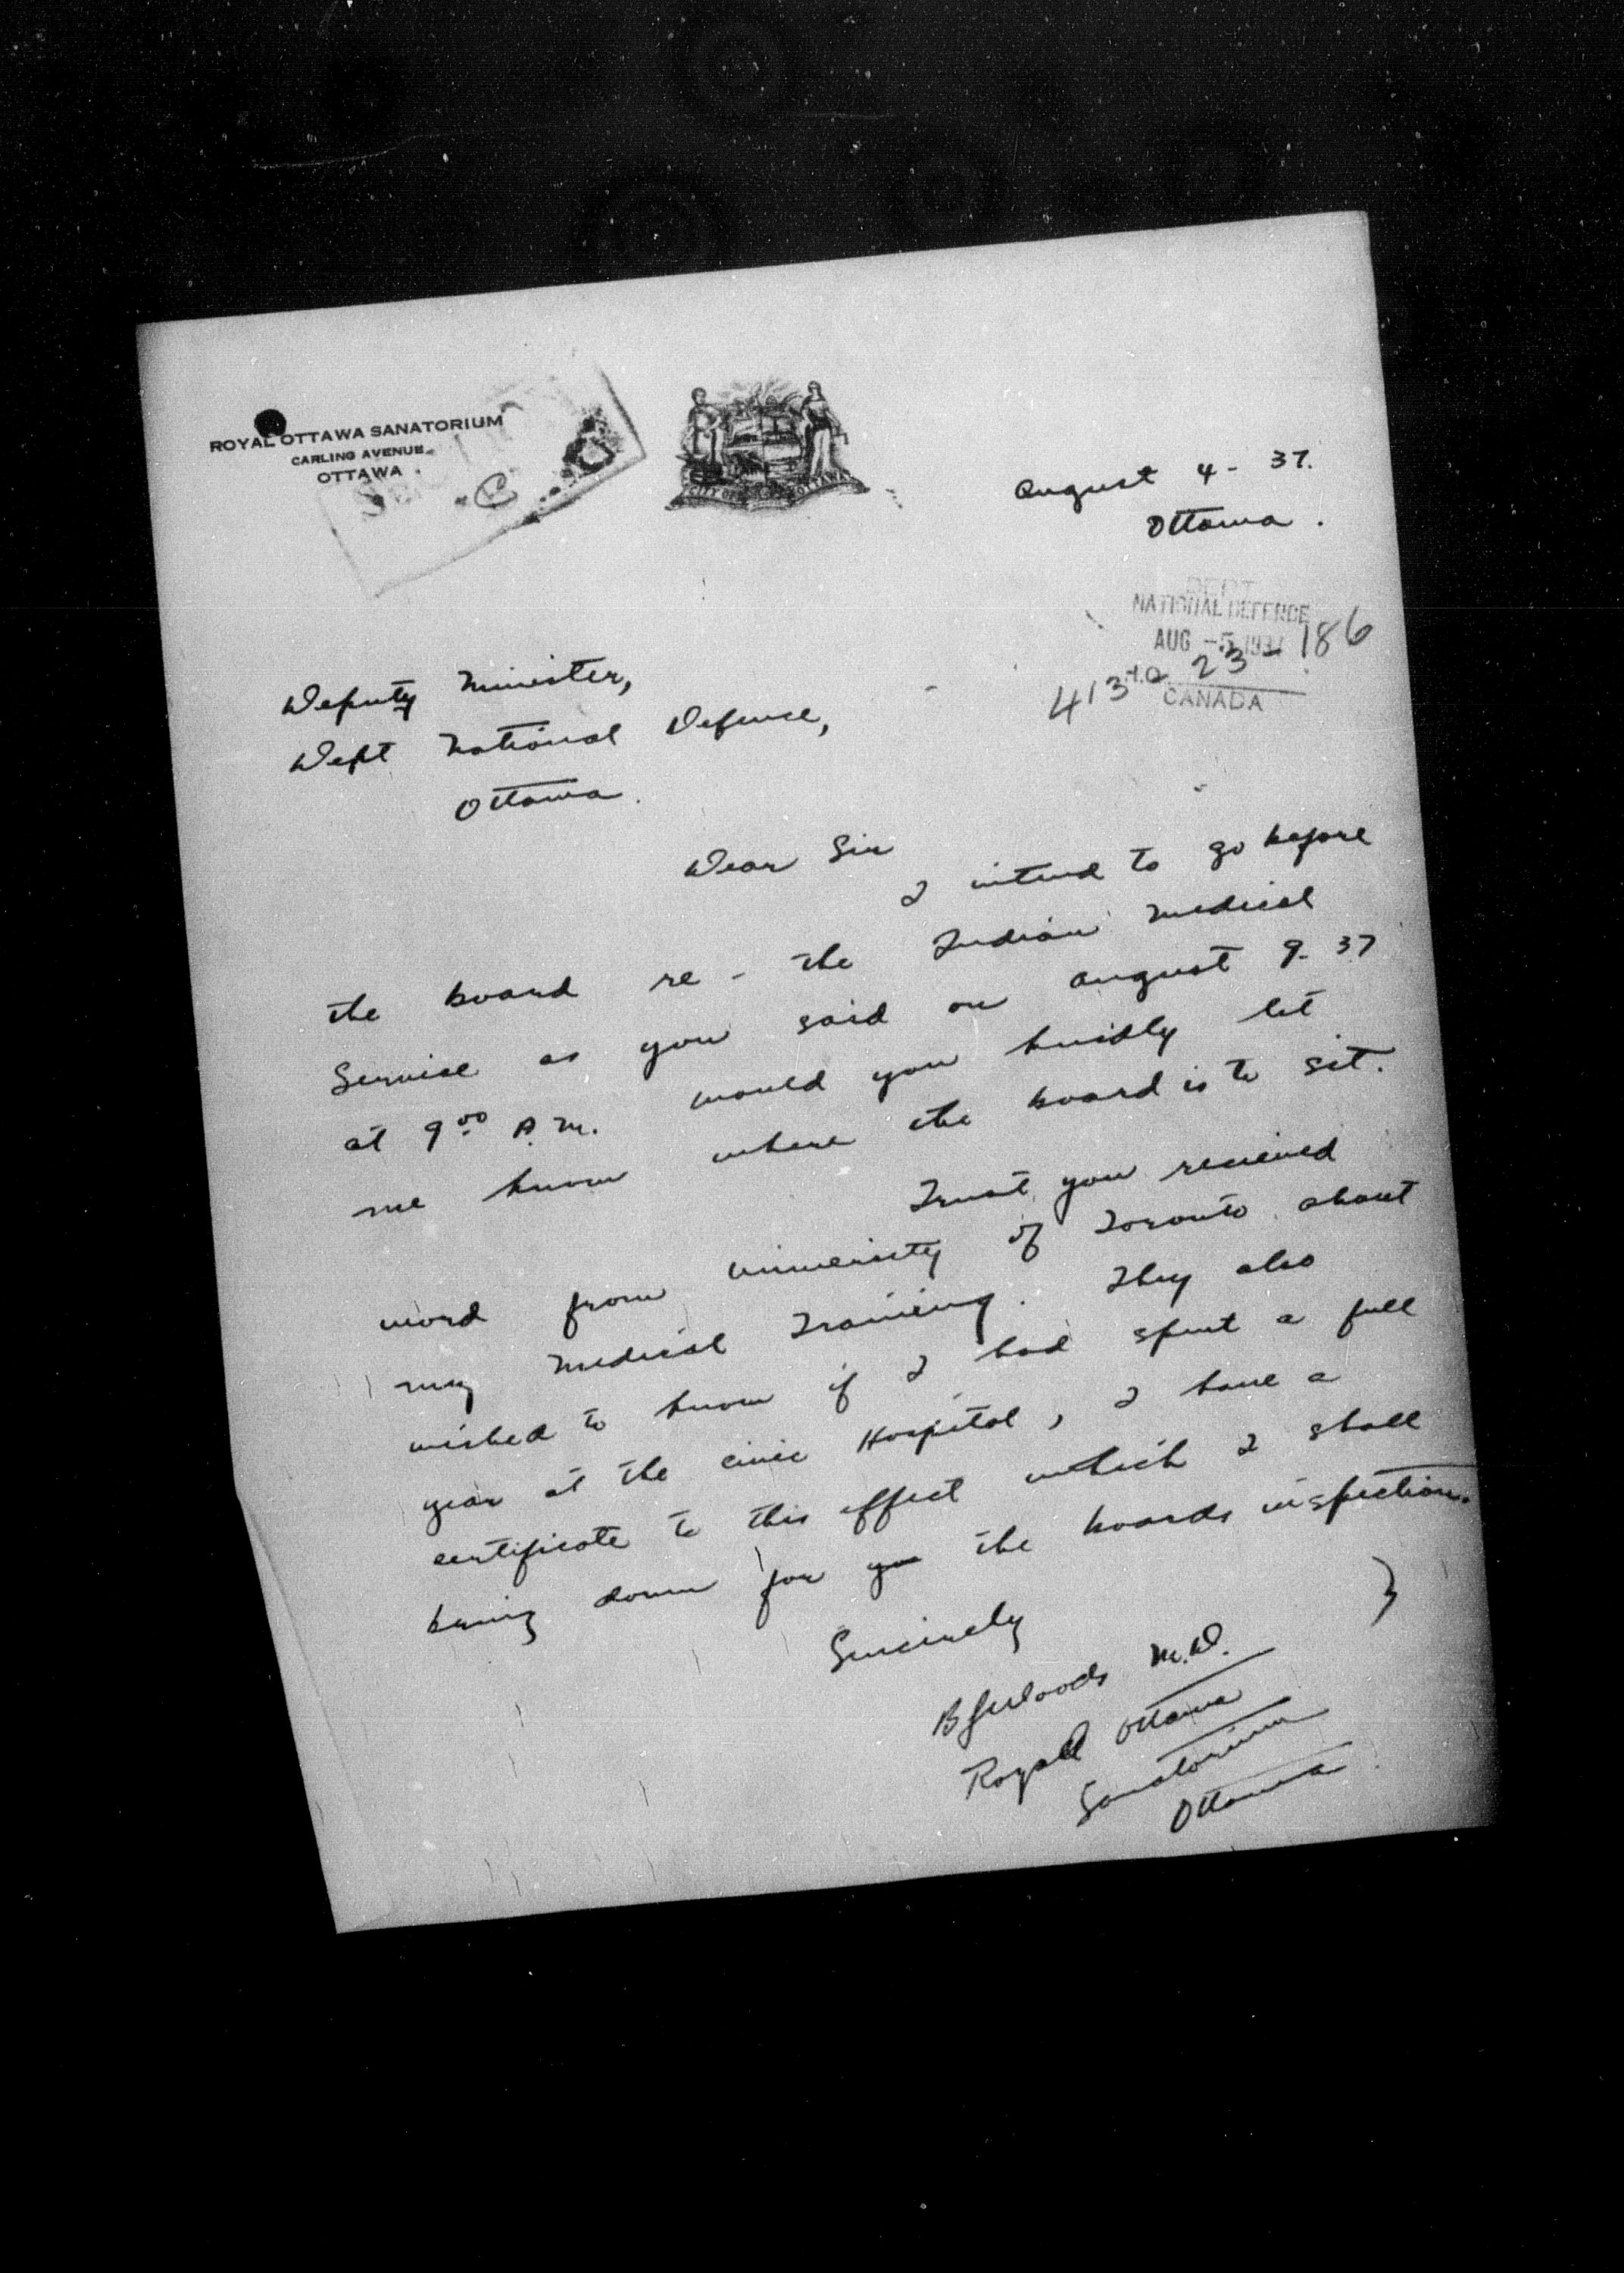 ROYAL OTTAWA SANATORIUM
CARLING AVENUE
OTTAWA
C
CITY OF OTTAWA
August 4 - 37.
Ottawa.
DEPT
NATIONAL DEFENCE
AUG -5 1937
H.Q. 413 23 - 186
CANADA
Deputy Minister,
Dept National Defence,
Ottawa.
Dear Sir
I intend to go before
the board re - the Indian Medical
Service as you said on August 9. 37
at 9.00 A.M. Would you kindly let
me know where the board is to sit.
Trust you recieved
word from University of Toronto about
my Medical Training. They also
wished to know if I had spent a full
year at the Civic Hospital, I have a
certificate to this effect which I shall
bring down for you the boards inspection.
Sincerely
Woods M.D.
Royal Ottawa
Sanatorium
Ottawa